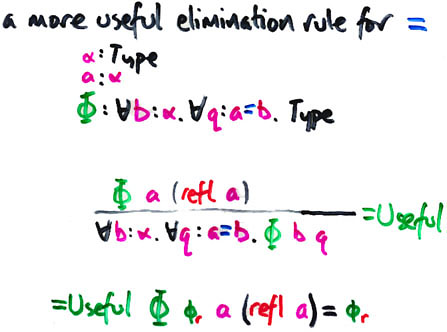 a more useful elimination rule for =
α:Type
a:α
Φ:∀b:α.∀q:a=b. Type
Φ a (refl a)
=Useful
∀b:α.∀q:a=b. Φ b q
=Useful Φ φᵣ a (refl a) = φᵣ